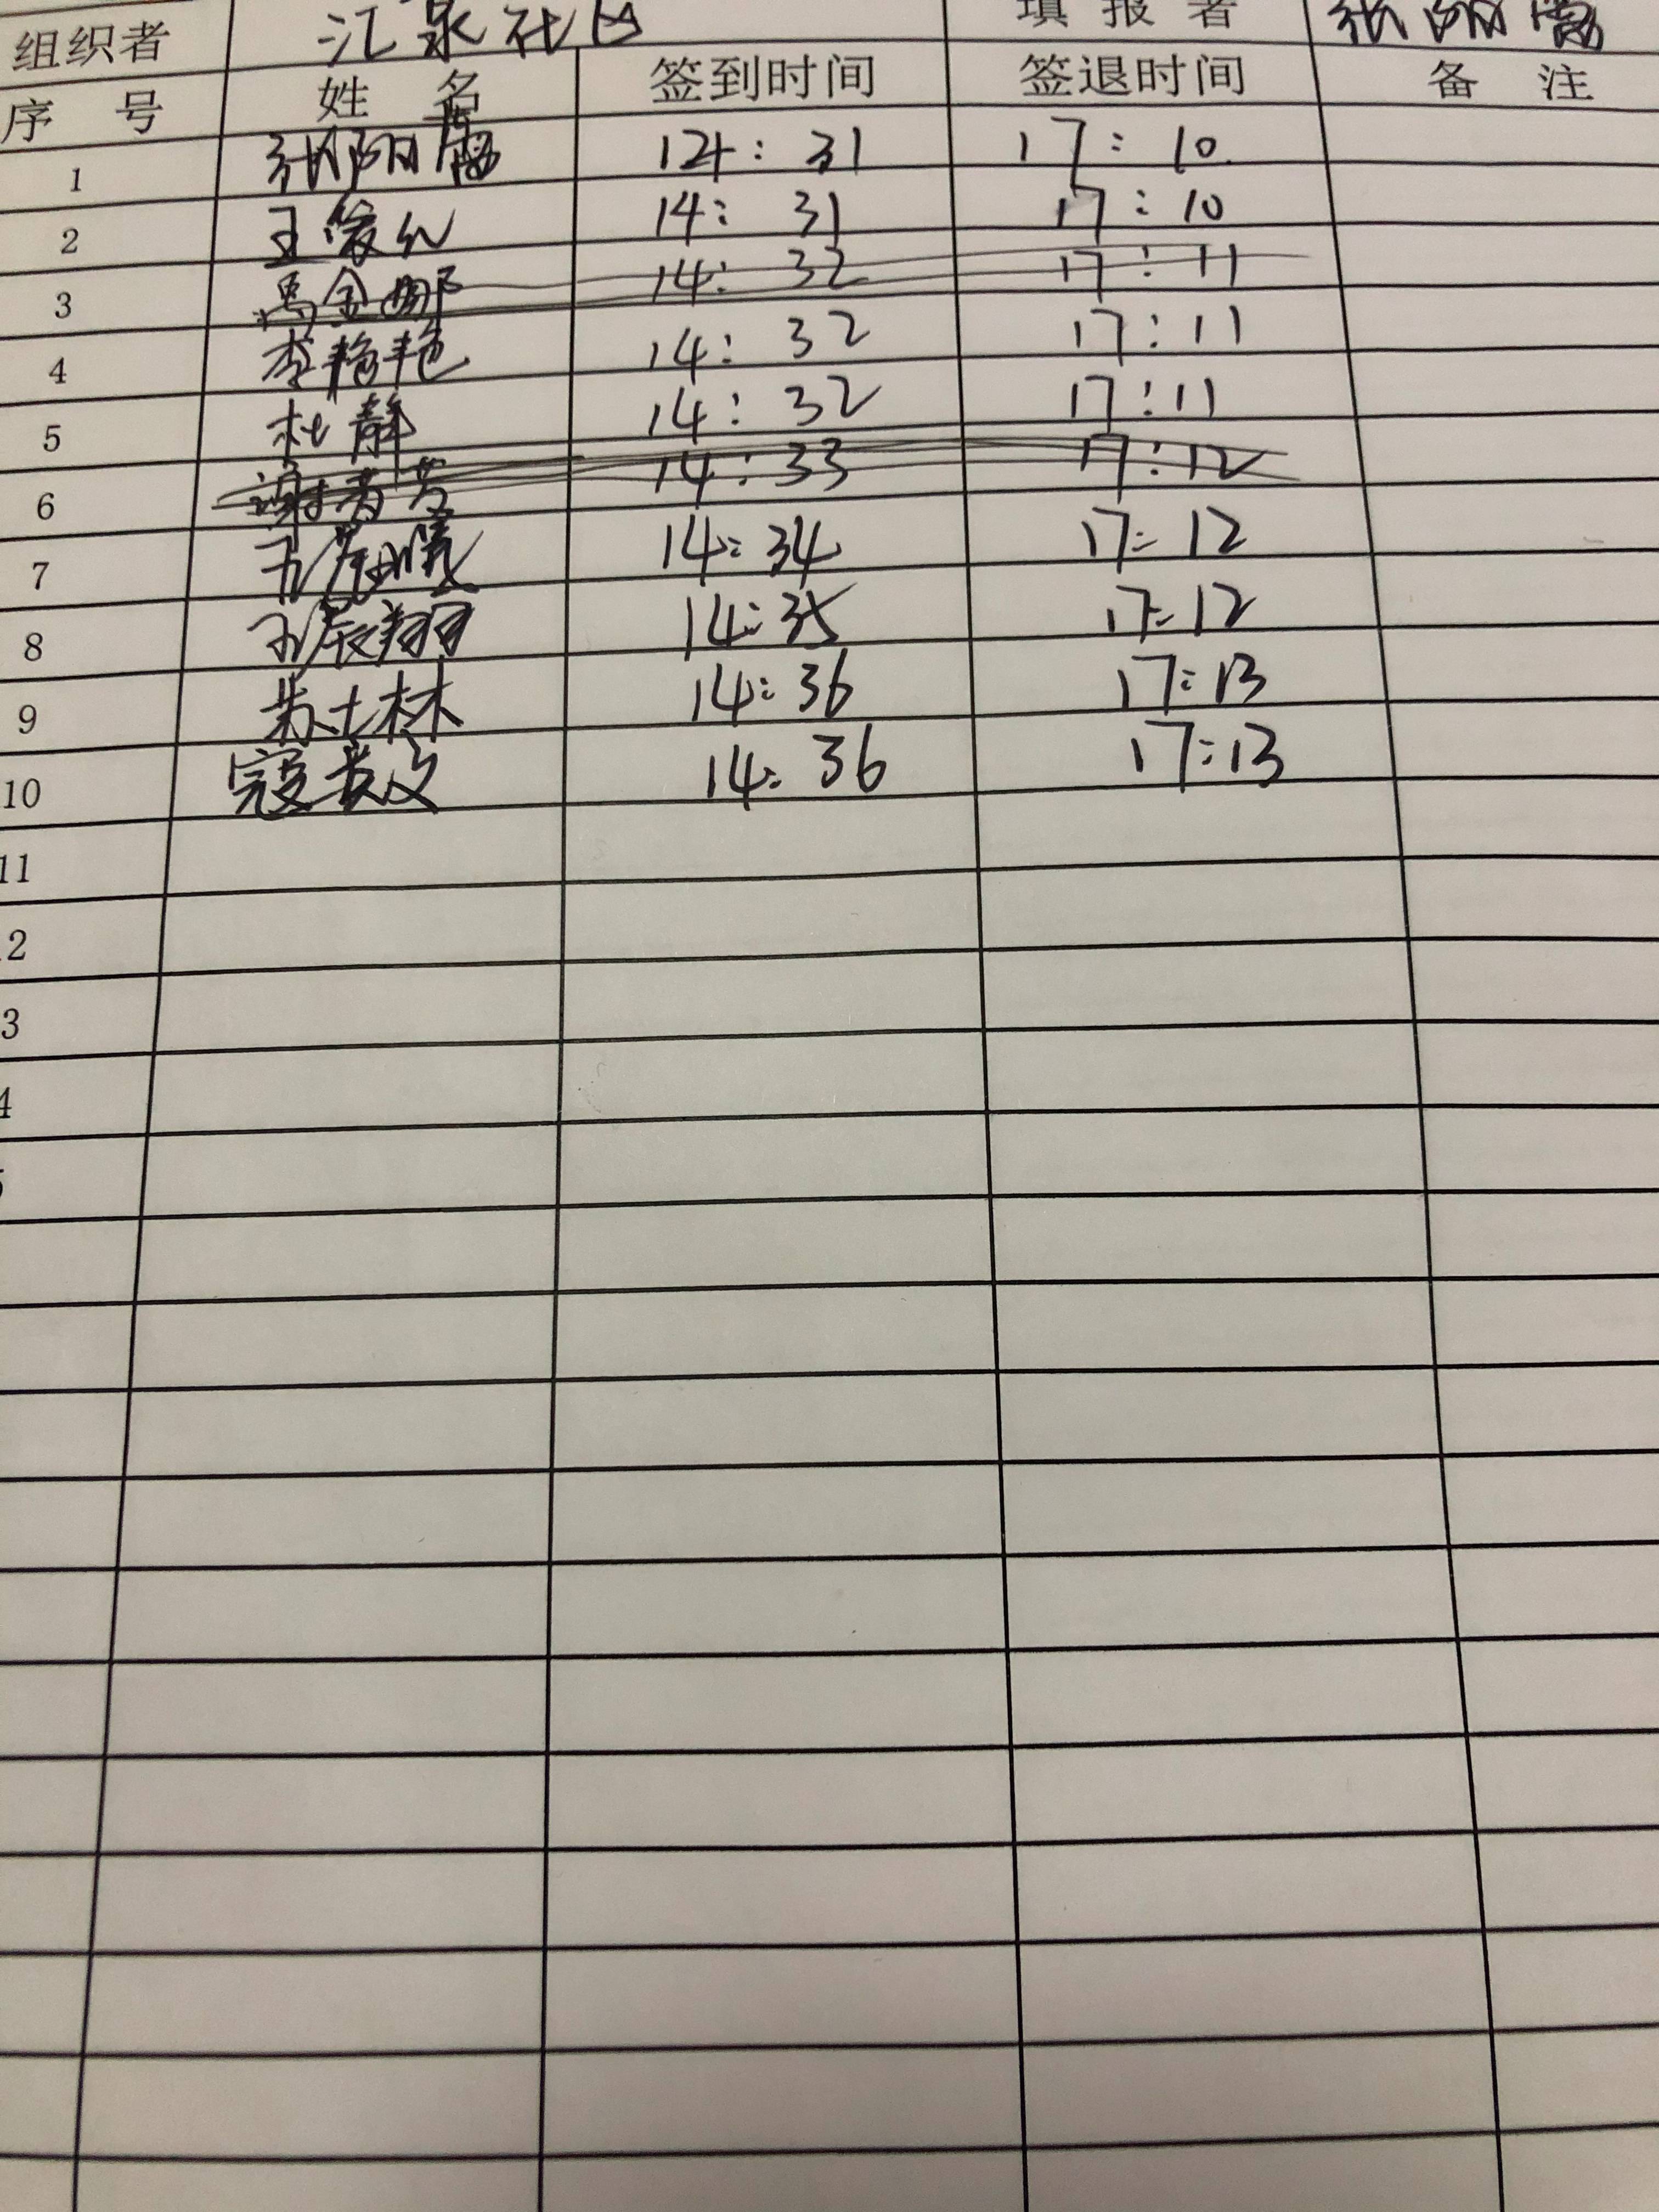 组织者 汇泉社区 填报者 张丽霞
序号 姓名 签到时间 签退时间 备注
1 张丽霞 14:31 17:10
2 王 14:31 17:10
3 马金娜 14:32 17:11
4 李艳艳 14:32 17:11
5 杜静 14:32 17:11
6 谢 14:33 17:12
7 14:34 17:12
8 孔辰翔 14:35 17:12
9 苏士林 14:36 17:13
10 寇 14:36 17:13
11